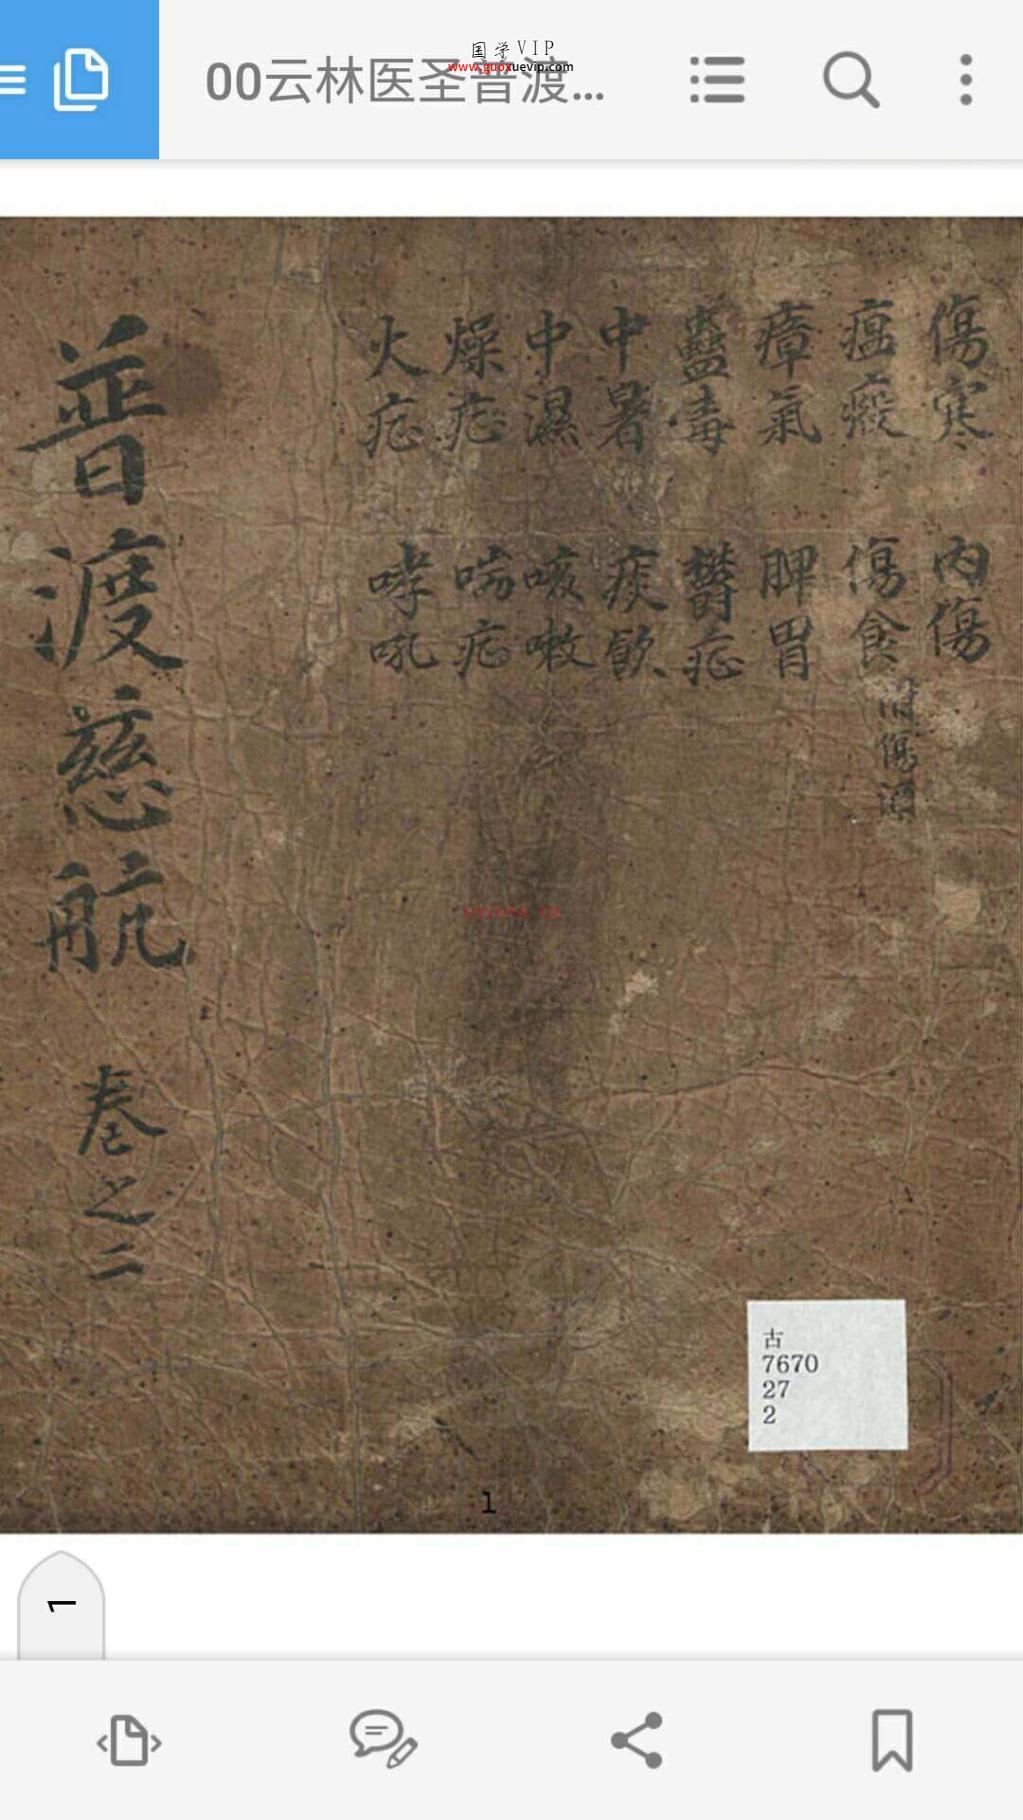 国学VIP
www.guoxuevip.com
00云林医圣普渡...
傷寒
瘟疫
瘴氣
蠱毒
中暑
中濕
燥症
火症
內傷
傷食 附傷酒
脾胃
鬱症
痰飲
咳嗽
喘症
哮吼
普渡慈航 卷之二
古
7670
27
2
1
1